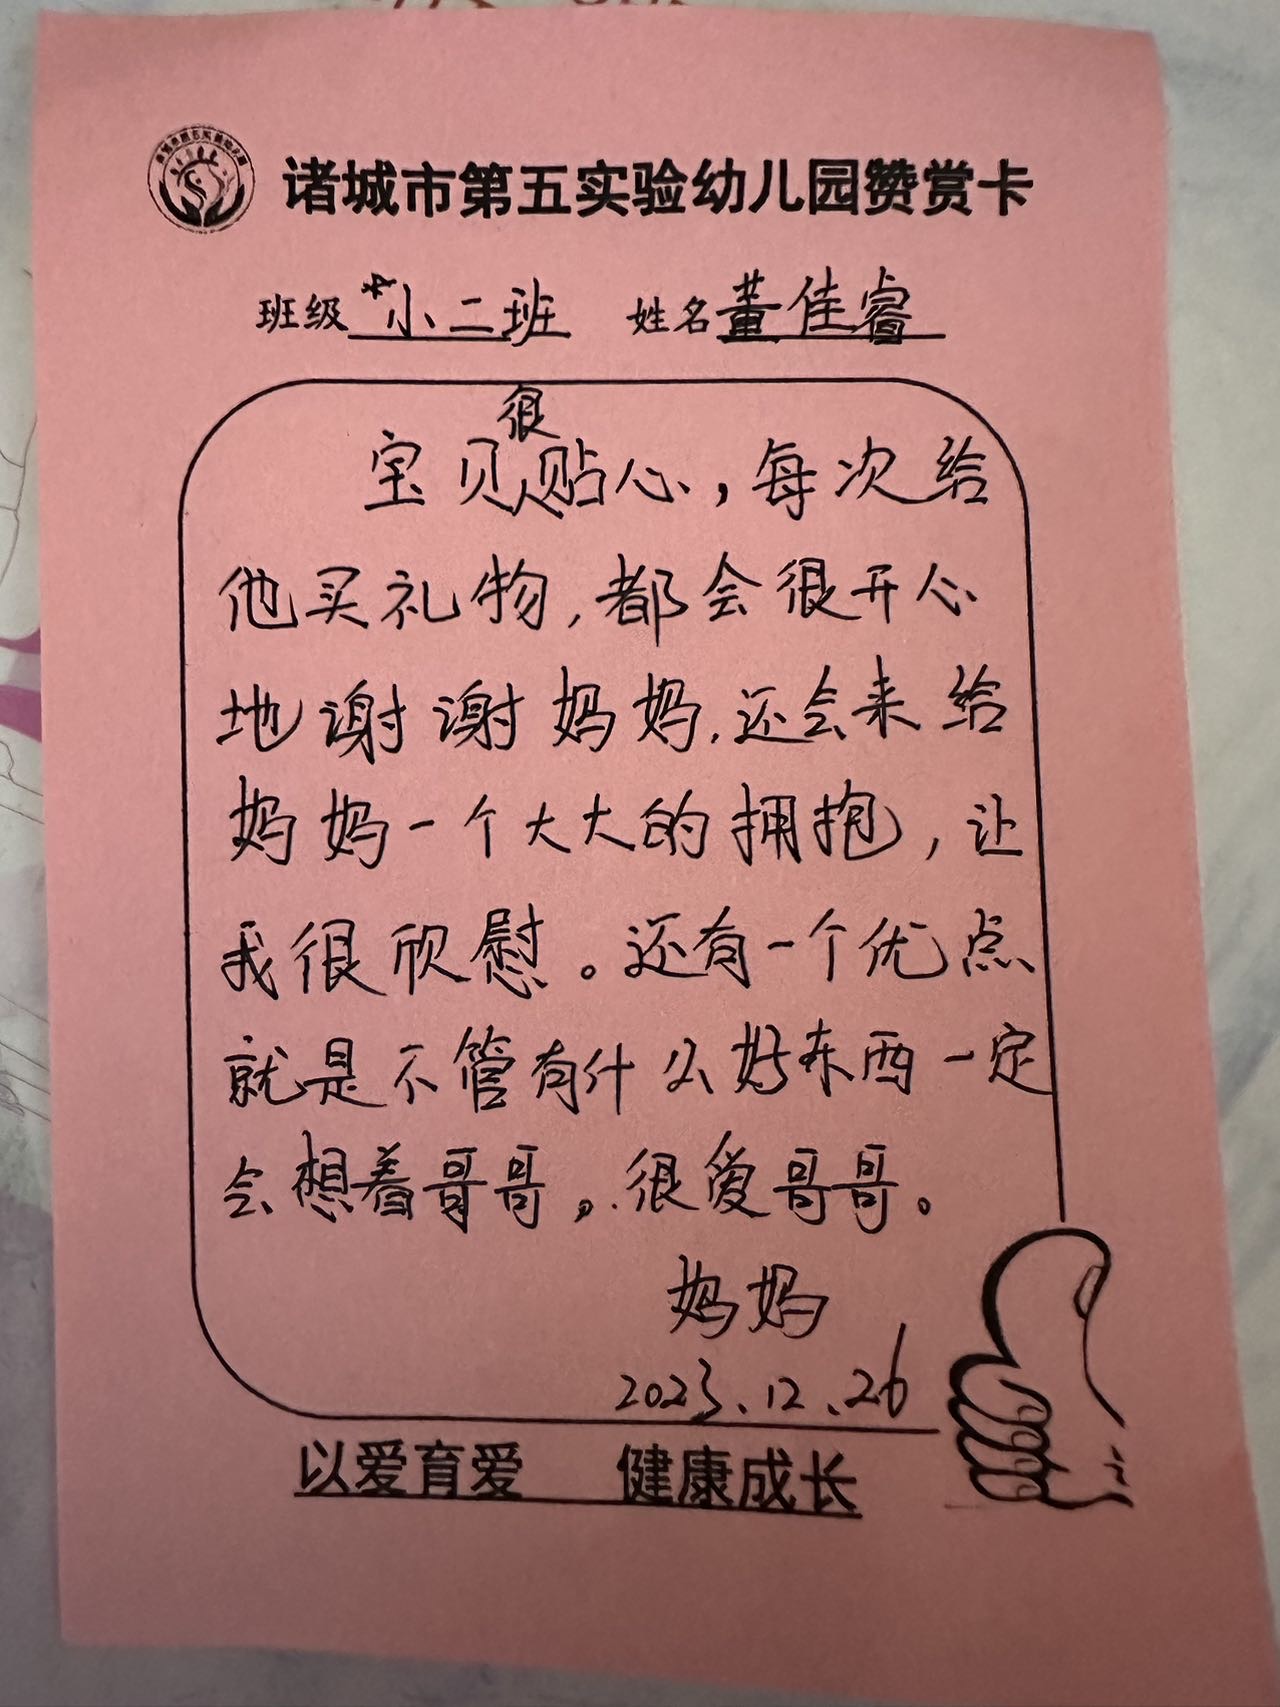 诸城市第五实验幼儿园赞赏卡
班级 小二班 姓名 董佳睿
宝贝很贴心，每次给
他买礼物，都会很开心
地谢谢妈妈，还会来给
妈妈一个大大的拥抱，让
我很欣慰。还有一个优点
就是不管有什么好东西一定
会想着哥哥。很爱哥哥。
妈妈
2023.12.26
以爱育爱 健康成长